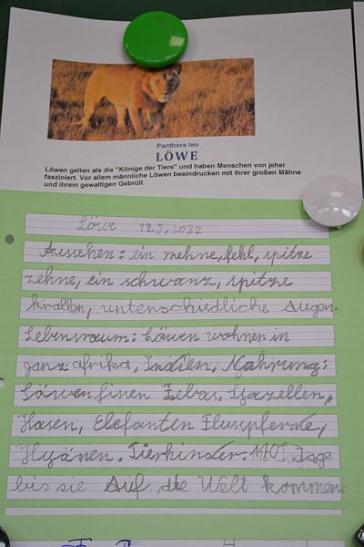 Panthera leo
LÖWE
Löwen gelten als die "Könige der Tiere" und haben Menschen von jeher
fasziniert. Vor allem männliche Löwen beeindrucken mit ihrer großen Mähne
und ihrem gewaltigen Gebrüll.
Löwe 12.5.2022
Aussehen: ein mehne, fehl, spitze
zehne, ein schwanz, spitze
krallen, unterschiedliche Augen.
Lebensraum: Löwen wohnen in
ganz afrika, Indien, Nahrung:
Löwen Zebras, Gazellen,
Hasen, Elefanten Flusspferde,
Hyänen. Tierkinder: 110T. Tage
bis sie Auf die Welt kommen.